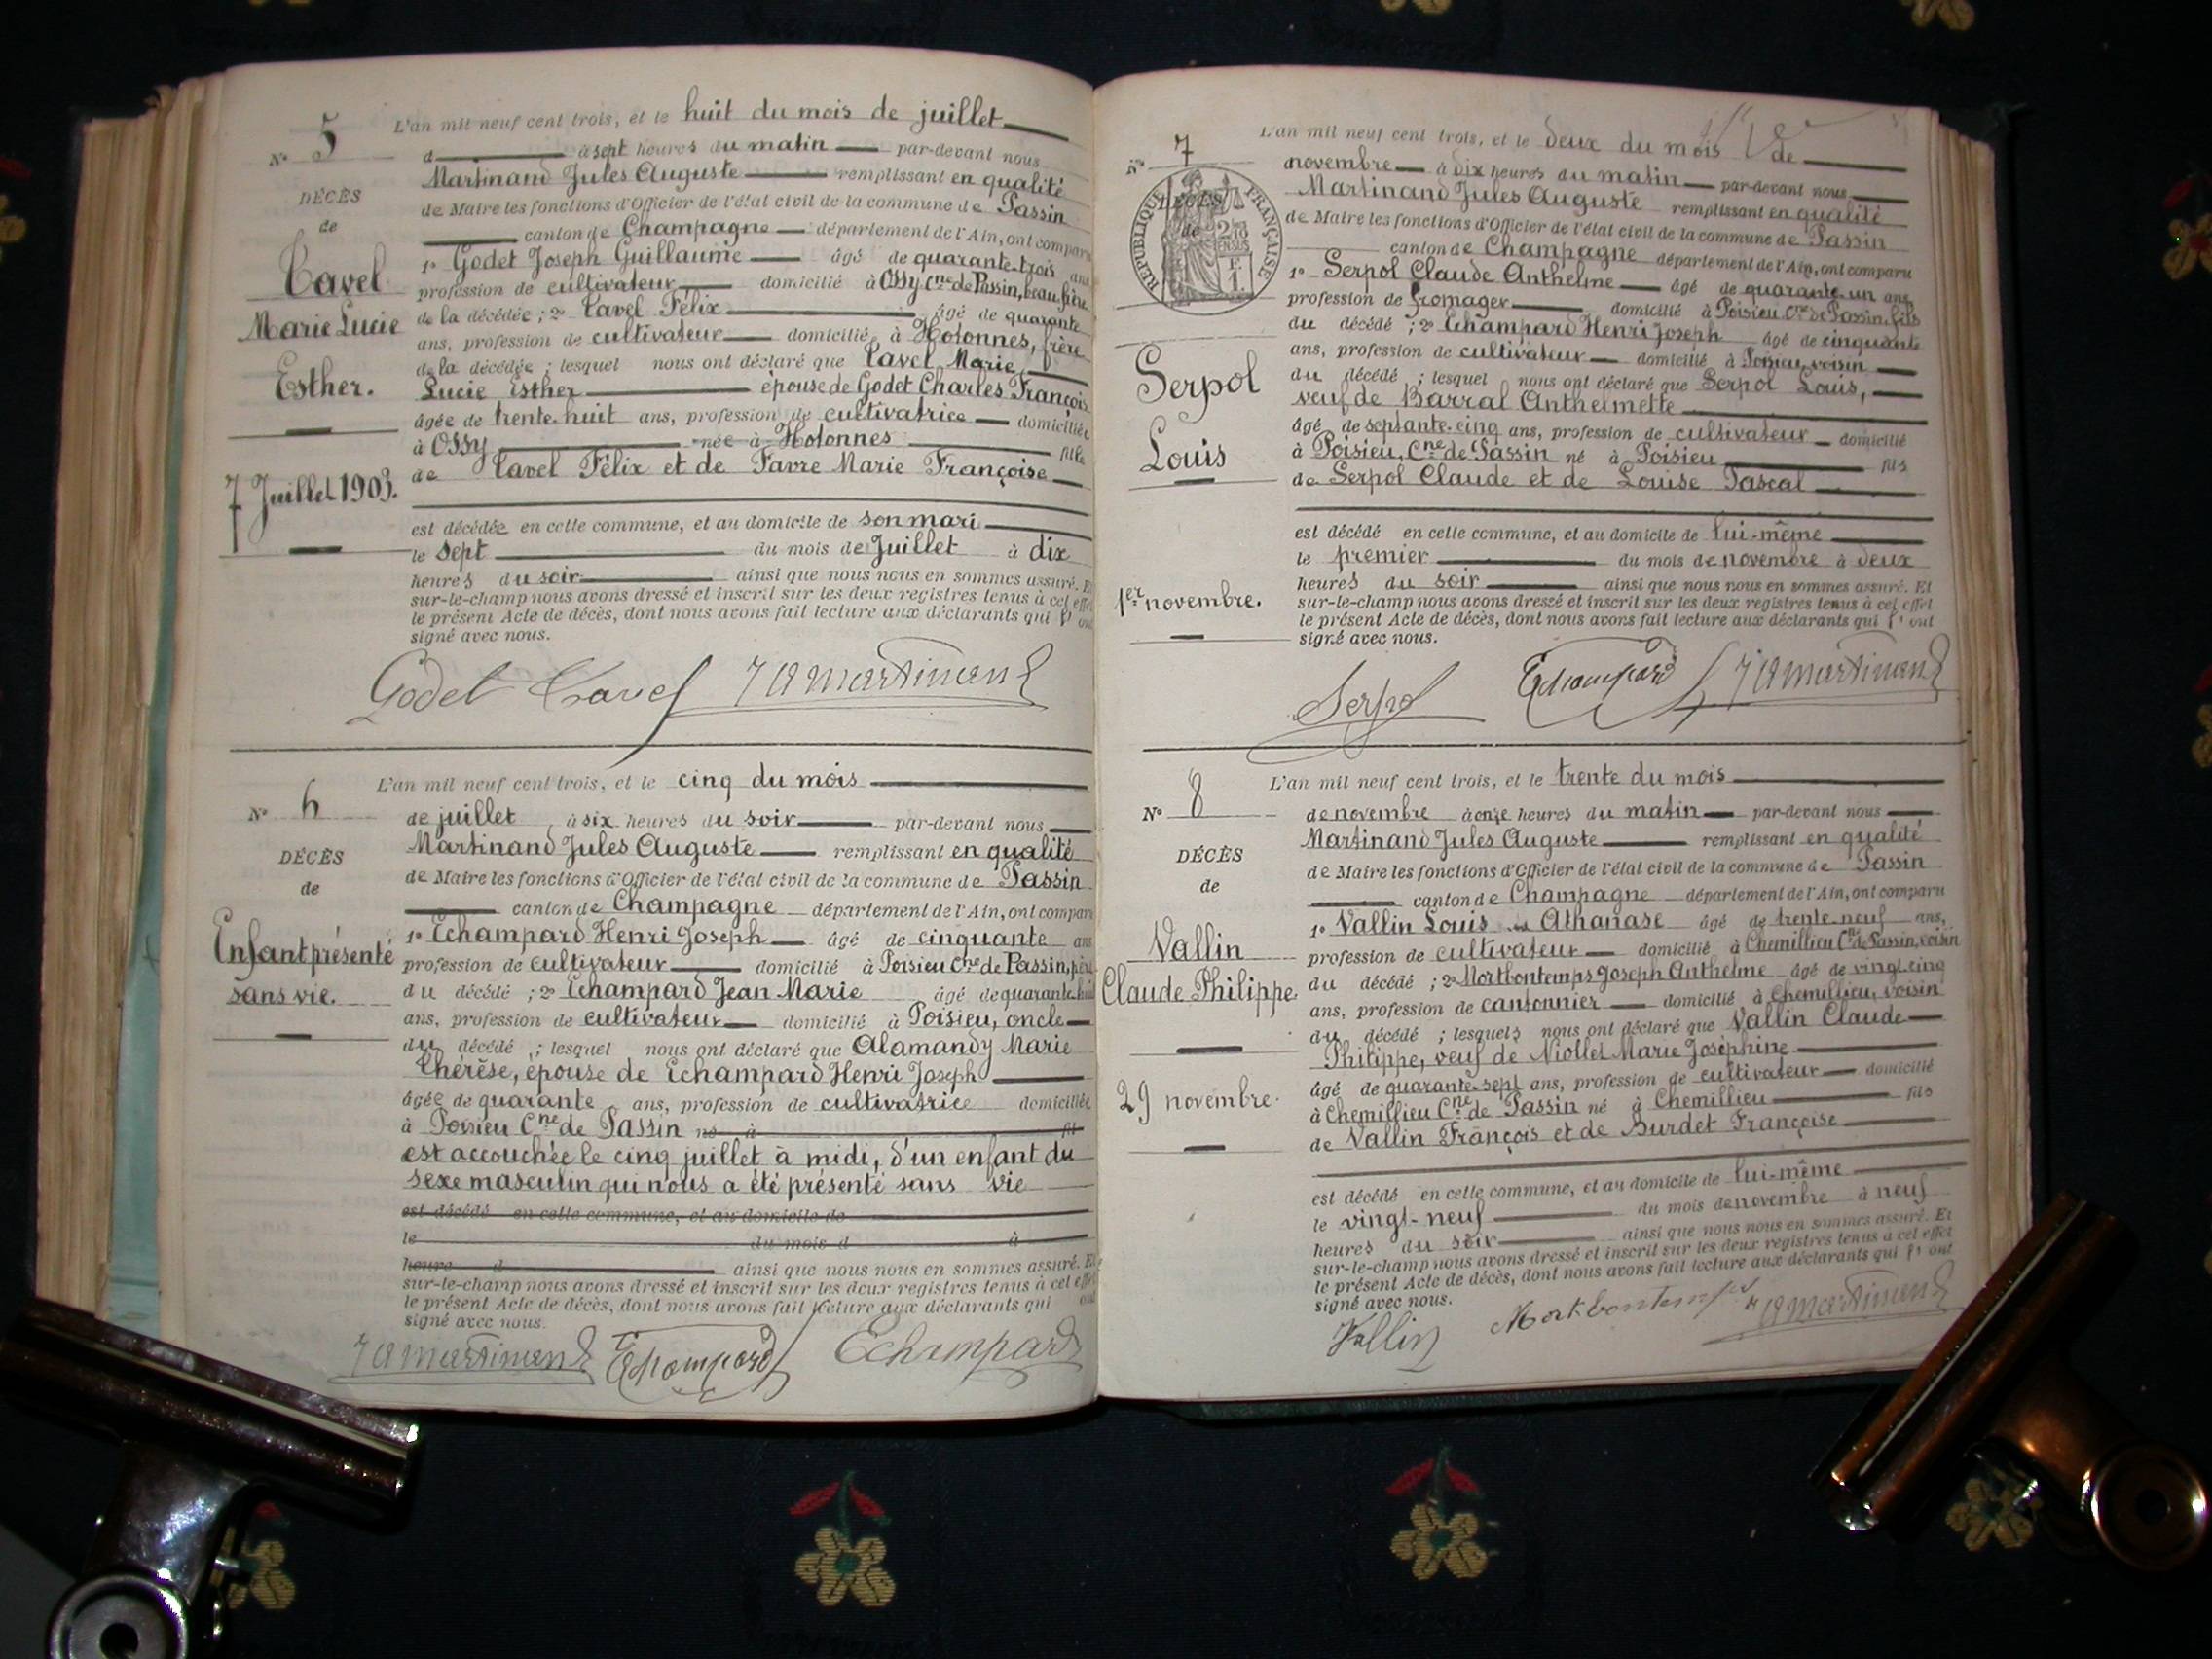 N° 5
DÉCÈS
de
Tavel
Marie Lucie
Esther.
7 Juillet 1903.
L'an mil neuf cent trois, et le huit du mois de juillet
d à sept heures du matin par-devant nous
Martinand Jules Auguste remplissant en qualité
de Maire les fonctions d'Officier de l'état civil de la commune de Passin
canton de Champagne département de l'Ain, ont comparu
1° Godet Joseph Guillaume âgé de quarante-trois ans
profession de cultivateur domicilié à Ossy Cne de Passin, beau-frère
de la décédée ; 2° Tavel Félix âgé de quarante
ans, profession de cultivateur domicilié à Hotonnes, frère
de la décédée ; lesquel nous ont déclaré que Tavel Marie
Lucie Esther épouse de Godet Charles François
âgée de trente-huit ans, profession de cultivatrice domiciliée
à Ossy née à Hotonnes fille
de Tavel Félix et de Favre Marie Françoise
est décédée en cette commune, et au domicile de son mari
le sept du mois de Juillet à dix
heures du soir ainsi que nous nous en sommes assuré. Et
sur-le-champ nous avons dressé et inscrit sur les deux registres tenus à cet effet
le présent Acte de décès, dont nous avons fait lecture aux déclarants qui l' ont
signé avec nous.
Godet Tavel JA Martinand
N° 6
DÉCÈS
de
Enfant présenté
sans vie.
L'an mil neuf cent trois, et le cinq du mois
de juillet à six heures du soir par-devant nous
Martinand Jules Auguste remplissant en qualité
de Maire les fonctions d'Officier de l'état civil de la commune de Passin
canton de Champagne département de l'Ain, ont comparu
1° Echampard Henri Joseph âgé de cinquante ans
profession de cultivateur domicilié à Poisieu Cne de Passin, père
du décédé ; 2° Echampard Jean Marie âgé de quarante-huit
ans, profession de cultivateur domicilié à Poisieu, oncle
du décédé ; lesquel nous ont déclaré que Alamandy Marie
Thérèse, épouse de Echampard Henri Joseph
âgée de quarante ans, profession de cultivatrice domiciliée
à Poisieu Cne de Passin né à fil
est accouchée le cinq juillet à midi, d'un enfant du
sexe masculin qui nous a été présenté sans vie
est décédé en cette commune, et au domicile de
le du mois d à
heure d ainsi que nous nous en sommes assuré. Et
sur-le-champ nous avons dressé et inscrit sur les deux registres tenus à cet effet
le présent Acte de décès, dont nous avons fait lecture aux déclarants qui ont
signé avec nous.
JA Martinand Echampard Echampard
N° 7
DÉCÈS
de
RÉPUBLIQUE FRANÇAISE
2/10 EN SUS
Serpol
Louis
1er novembre.
L'an mil neuf cent trois, et le deux du mois de
novembre à dix heures du matin par-devant nous
Martinand Jules Auguste remplissant en qualité
de Maire les fonctions d'Officier de l'état civil de la commune de Passin
canton de Champagne département de l'Ain, ont comparu
1° Serpol Claude Anthelme âgé de quarante-un ans
profession de fromager domicilié à Poisieu Cne de Passin, fils
du décédé ; 2° Echampard Henri Joseph âgé de cinquante
ans, profession de cultivateur domicilié à Poisieu, voisin
du décédé ; lesquel nous ont déclaré que Serpol Louis,
veuf de Barral Anthelmette
âgé de septante-cinq ans, profession de cultivateur domicilié
à Poisieu, Cne de Passin né à Poisieu fils
de Serpol Claude et de Louise Pascal
est décédé en cette commune, et au domicile de lui-même
le premier du mois de novembre à deux
heures du soir ainsi que nous nous en sommes assuré. Et
sur-le-champ nous avons dressé et inscrit sur les deux registres tenus à cet effet
le présent Acte de décès, dont nous avons fait lecture aux déclarants qui l' ont
signé avec nous.
Serpol Echampard JA Martinand
N° 8
DÉCÈS
de
Vallin
Claude Philippe.
29 novembre.
L'an mil neuf cent trois, et le trente du mois
de novembre à onze heures du matin par-devant nous
Martinand Jules Auguste remplissant en qualité
de Maire les fonctions d'Officier de l'état civil de la commune de Passin
canton de Champagne département de l'Ain, ont comparu
1° Vallin Louis Athanase âgé de trente-neuf ans,
profession de cultivateur domicilié à Chemillieu Cne de Passin, voisin
du décédé ; 2° Mortbontemps Joseph Anthelme âgé de vingt-cinq
ans, profession de cantonnier domicilié à Chemillieu, voisin
du décédé ; lesquels nous ont déclaré que Vallin Claude
Philippe, veuf de Niollet Marie Joséphine
âgé de quarante-sept ans, profession de cultivateur domicilié
à Chemillieu Cne de Passin né à Chemillieu fils
de Vallin François et de Burdet Françoise
est décédé en cette commune, et au domicile de lui-même
le vingt-neuf du mois de novembre à neuf
heures du soir ainsi que nous nous en sommes assuré. Et
sur-le-champ nous avons dressé et inscrit sur les deux registres tenus à cet effet
le présent Acte de décès, dont nous avons fait lecture aux déclarants qui l' ont
signé avec nous.
Vallin Mortbontemps JA Martinand